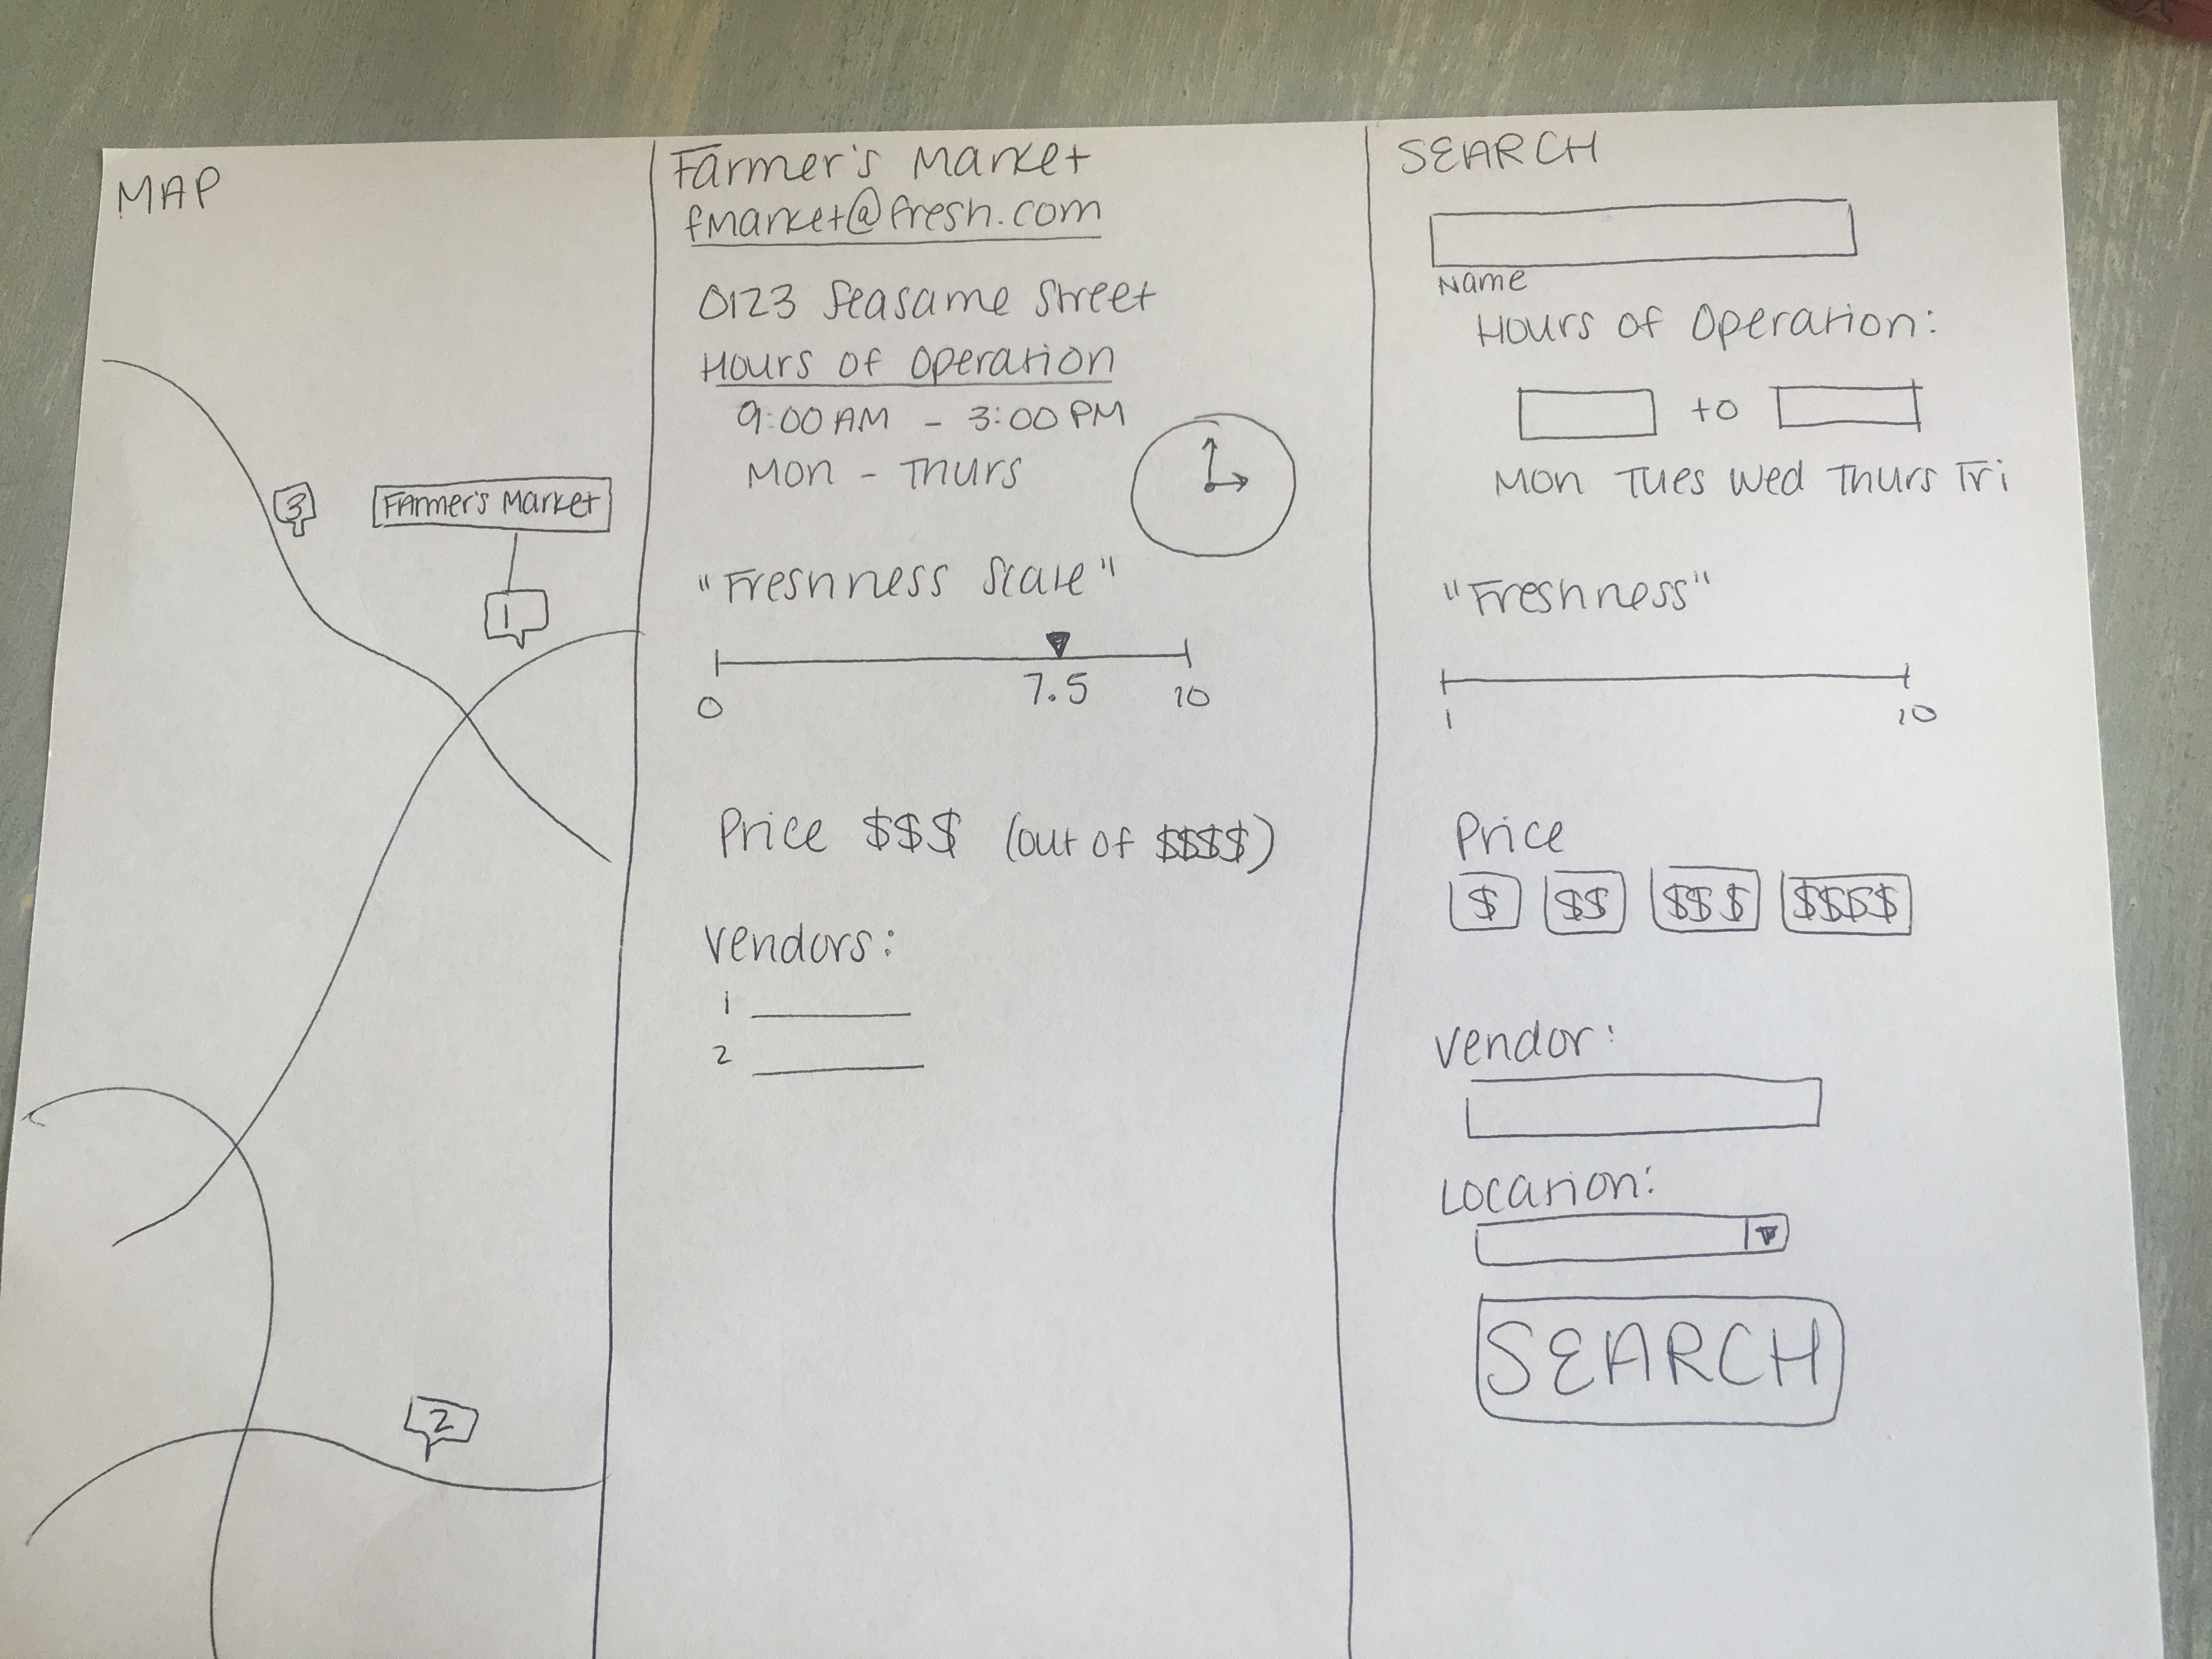 MAP
3
Farmer's Market
1
2
Farmer's Market
fmarket@fresh.com
0123 Seasame Street
Hours of Operation
9:00 AM - 3:00 PM
Mon - Thurs
"Freshness Scale"
7.5
0 10
Price $$$ (out of $$$$)
Vendors:
1
2
SEARCH
Name
Hours of Operation:
to
Mon Tues Wed Thurs Fri
"Freshness"
1 10
Price
$ $$ $$$ $$$$
Vendor:
Location:
SEARCH